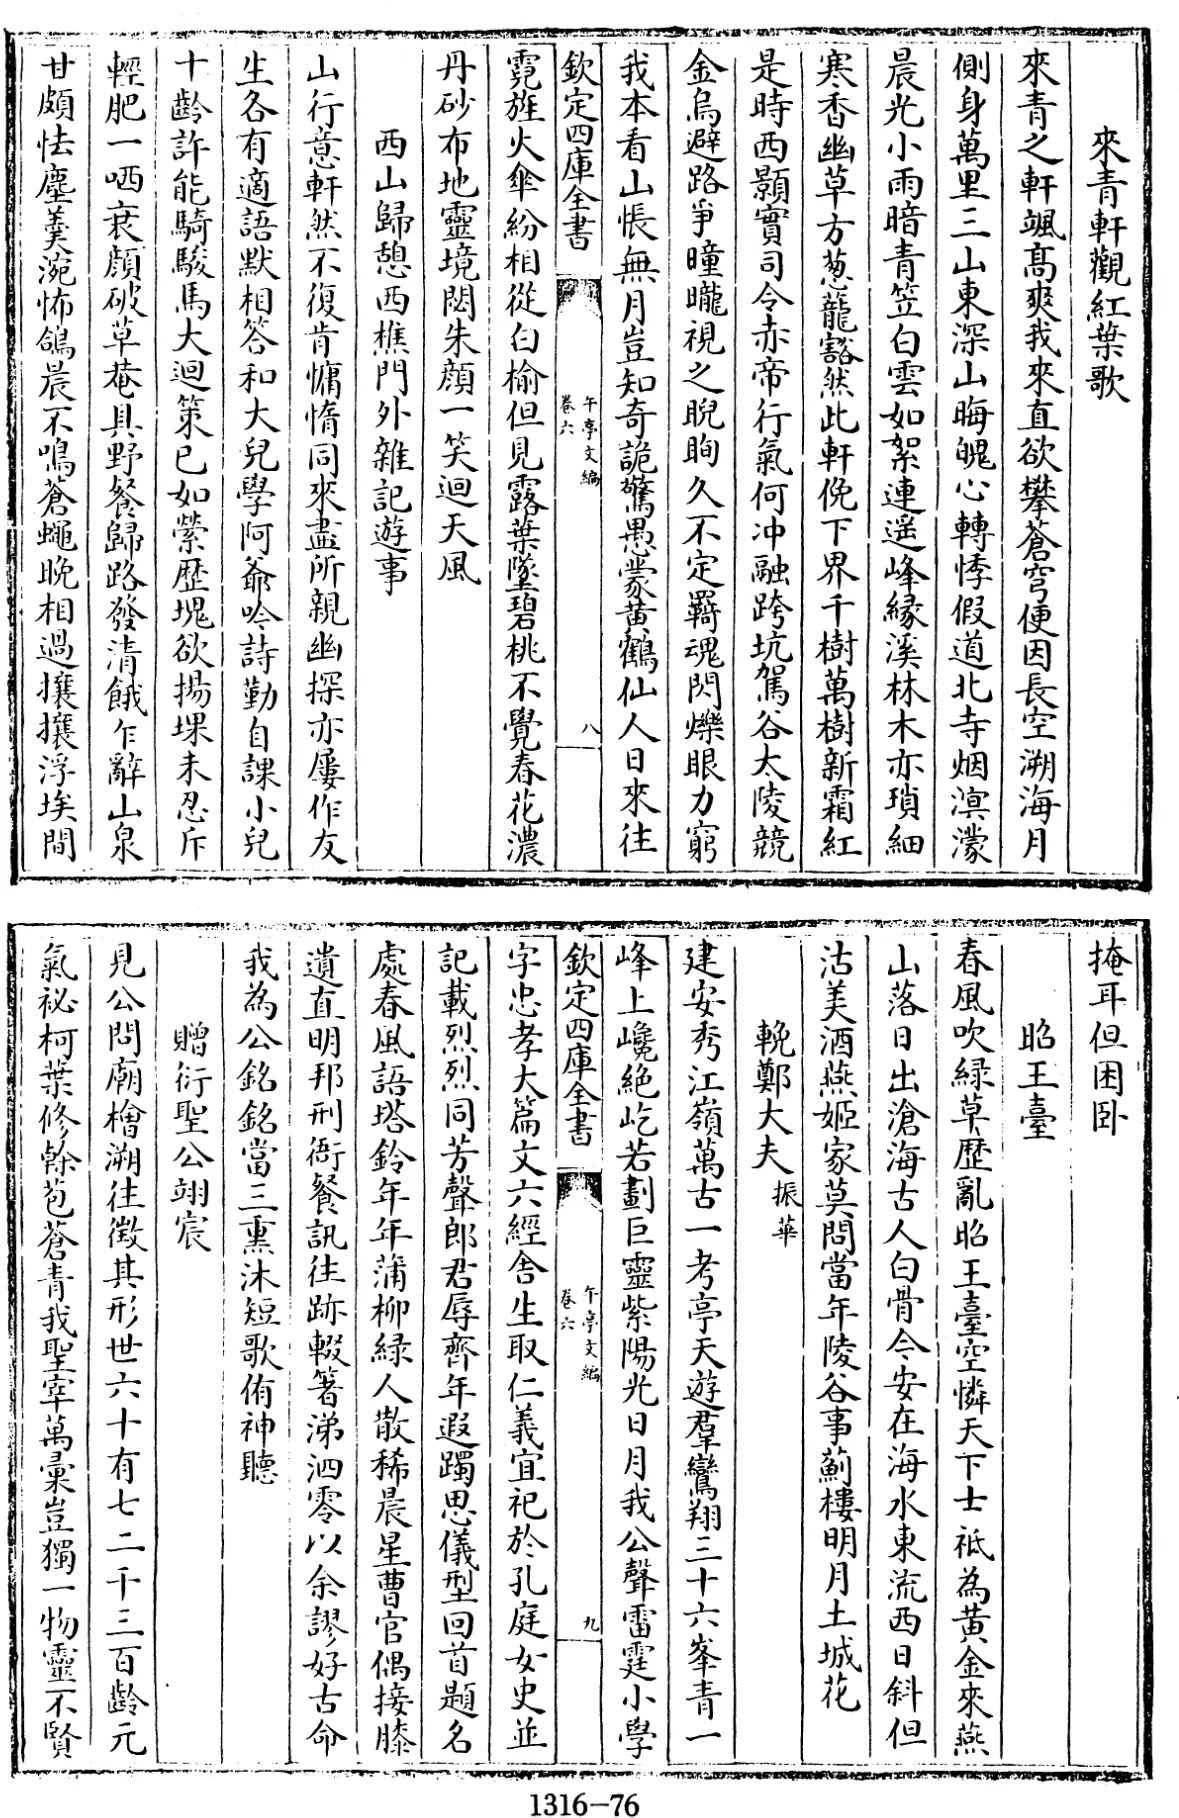 來青軒觀紅葉歌
來青之軒颯髙爽我來直欲攀蒼穹便因長空溯海月
側身萬里三山東深山晦魄心轉悸假道北寺烟溟濛
晨光小雨暗青笠白雲如絮連遥峰縁溪林木亦瑣細
寒香幽草方葱蘢豁然此軒俛下界千樹萬樹新霜紅
是時西顥實司令赤帝行氣何冲融跨坑駕谷太陵競
金烏避路爭曈曨視之睨眴久不定羇魂閃爍眼力窮
我本看山悵無月豈知奇詭驚愚蒙黄鶴仙人日來往
欽定四庫全書
午亭文編
卷六
八
霓旌火傘紛相從白榆但見露葉墜碧桃不覺春花濃
丹砂布地靈境閟朱顔一笑迴天風
西山歸憩西樵門外雜記遊事
山行意軒然不復肯慵惰同來盡所親幽探亦屢作友
生各有適語默相答和大兒學阿爺吟詩勤自課小兒
十齡許能騎駿馬大迴策已如縈歴塊欲揚堁未忍斥
輕肥一哂衰顔破草菴具野餐歸路發清餓乍辭山泉
甘頗怯塵羮涴怖鴿晨不鳴蒼蠅晚相過攘攘浮埃間
掩耳但困卧
昭王臺
春風吹緑草歴亂昭王臺空憐天下士祗為黄金來燕
山落日出滄海古人白骨今安在海水東流西日斜但
沽美酒燕姬家莫問當年陵谷事薊樓明月土城花
輓鄭大夫振華
建安秀江嶺萬古一考亭天遊羣鸞翔三十六峯青一
峰上巉絶屹若劃巨靈紫陽光日月我公聲雷霆小學
欽定四庫全書
午亭文編
卷六
九
字忠孝大篇文六經舍生取仁義宜祀於孔庭女史並
記載烈烈同芳聲郎君辱齊年遐躅思儀型回首題名
處春風語塔鈴年年蒲柳緑人散稀晨星曹官偶接膝
遺直明邦刑衙餐訊往跡輟箸涕泗零以余謬好古命
我為公銘銘當三熏沐短歌侑神聽
贈衍聖公翊宸
見公問廟檜溯往徴其形世六十有七二千三百齡元
氣祕柯葉修幹苞蒼青我聖宰萬彙豈獨一物靈不賢
1316–76